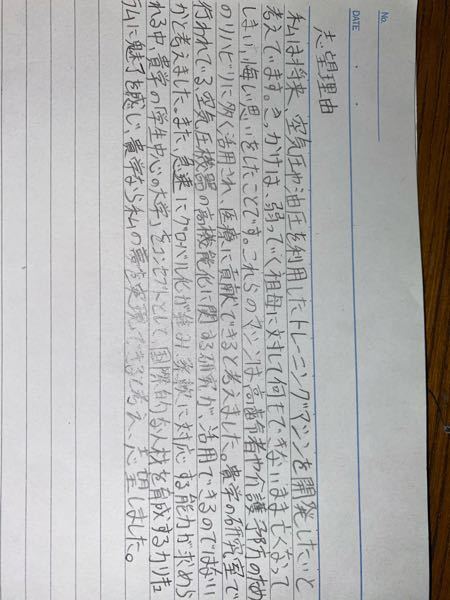 No.
DATE
志望理由
私は将来、空気圧や油圧を利用したトレーニングマシンを開発したいと
考えています。きっかけは、弱っていく祖母に対して何もできないまま亡くなって
しまい、悔しい思いをしたことです。これらのマシンは高齢者や介護予防のため
のリハビリに多く活用され、医療に貢献できると考えました。貴学の研究室で
行われている空気圧機器の高機能化に関する研究が、活用できるのではない
かと考えました。また、急速にグローバル化が進み、柔軟に対応する能力が求めら
れる中、貴学の「学生中心の大学」をコンセプトとして国際的な人材を育成するカリキュ
ラムに魅了を感じ、貴学なら私の夢を実現できると考え、志望しました。